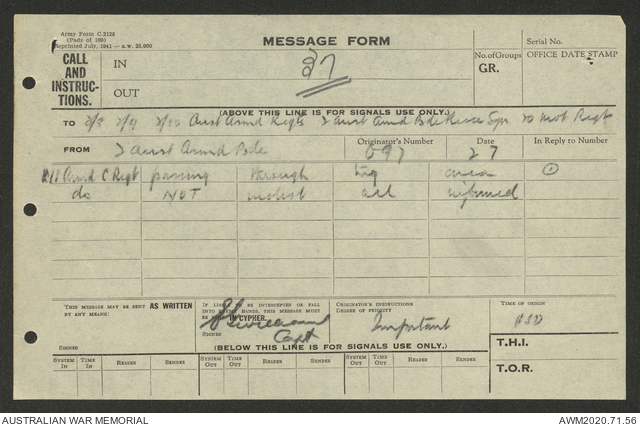 Army Form C.2128
(Pads of 100)
Reprinted July, 1941 — a.w. 25,000
MESSAGE FORM
Serial No.
CALL AND INSTRUC-TIONS.
IN
OUT
27
No. of Groups
GR.
OFFICE DATE STAMP
(ABOVE THIS LINE IS FOR SIGNALS USE ONLY.)
TO 2/8 2/9 2/10 Aust Armd Regts 2 Aust Armd Bde Sqn 20 Mot Regt
FROM 2 Aust Armd Bde
Originator's Number
697
Date
27
In Reply to Number
2/11 Armd C Regt passing through area
do NOT molest all informed
THIS MESSAGE MAY BE SENT AS WRITTEN
BY ANY MEANS:
SIGNED
IF LIABLE TO BE INTERCEPTED OR FALL
INTO ENEMY HANDS, THIS MESSAGE MUST
BE SENT IN CYPHER.
SIGNED
Capt
ORIGINATOR'S INSTRUCTIONS
DEGREE OF PRIORITY
Important
TIME OF ORIGIN
(BELOW THIS LINE IS FOR SIGNALS USE ONLY.)
T.H.I.
T.O.R.
SYSTEM IN TIME IN READER SENDER SYSTEM OUT TIME OUT READER SENDER SYSTEM OUT TIME OUT READER SENDER
AUSTRALIAN WAR MEMORIAL
AWM2020.71.56